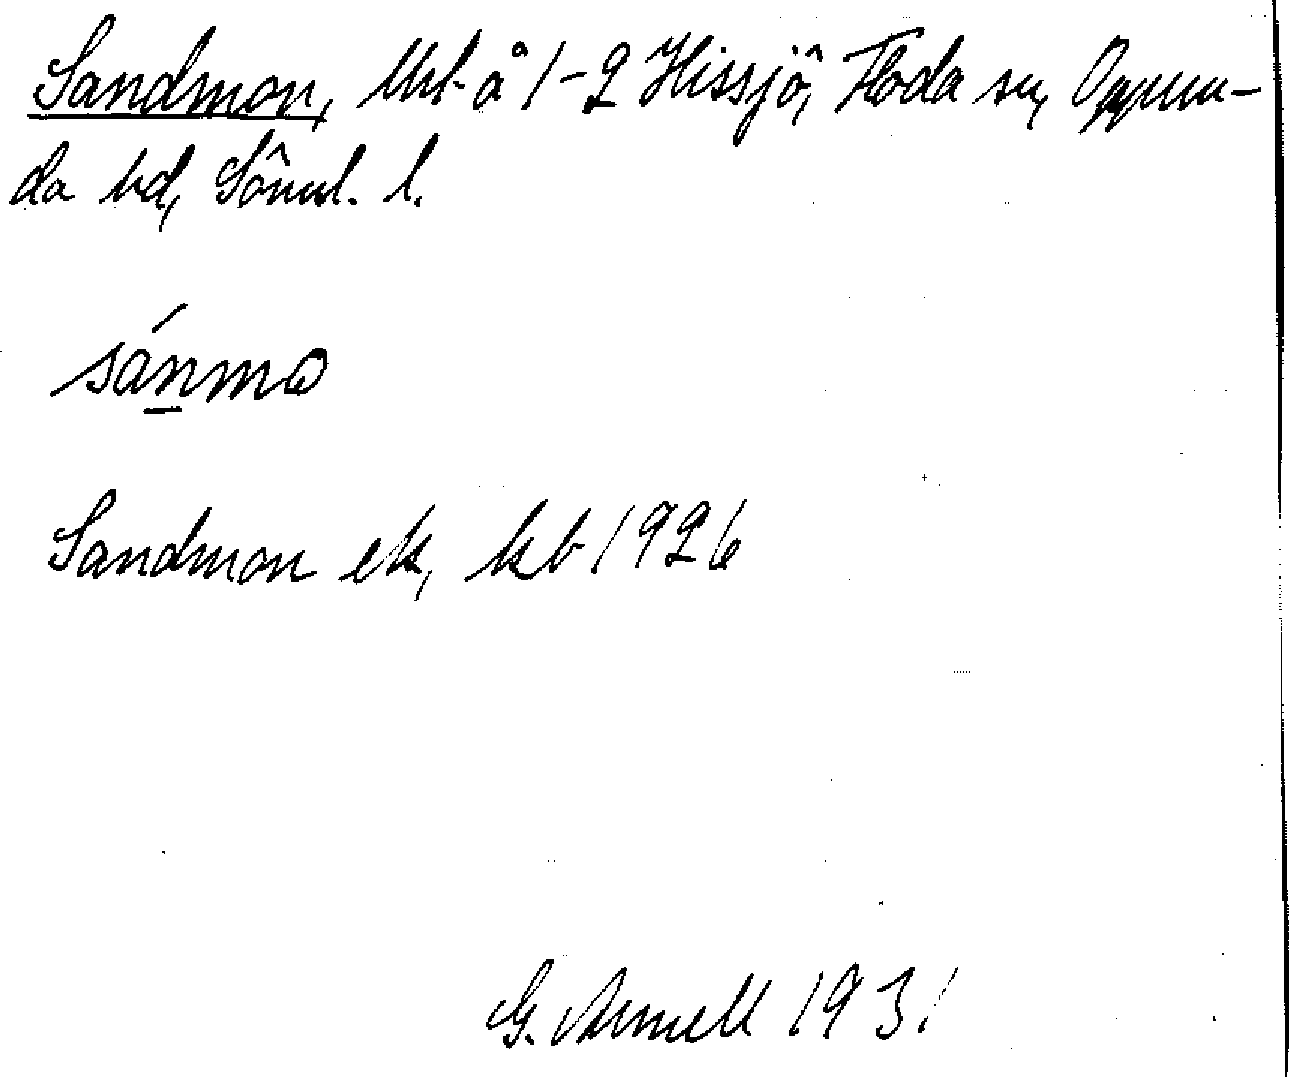 Sandmon, Utb å 1-2 Hissjö, Floda sn, Oppun-
da hd, Söml. l.
sánmo
Sandmon ek, kb 1926
G. Arnell 1931